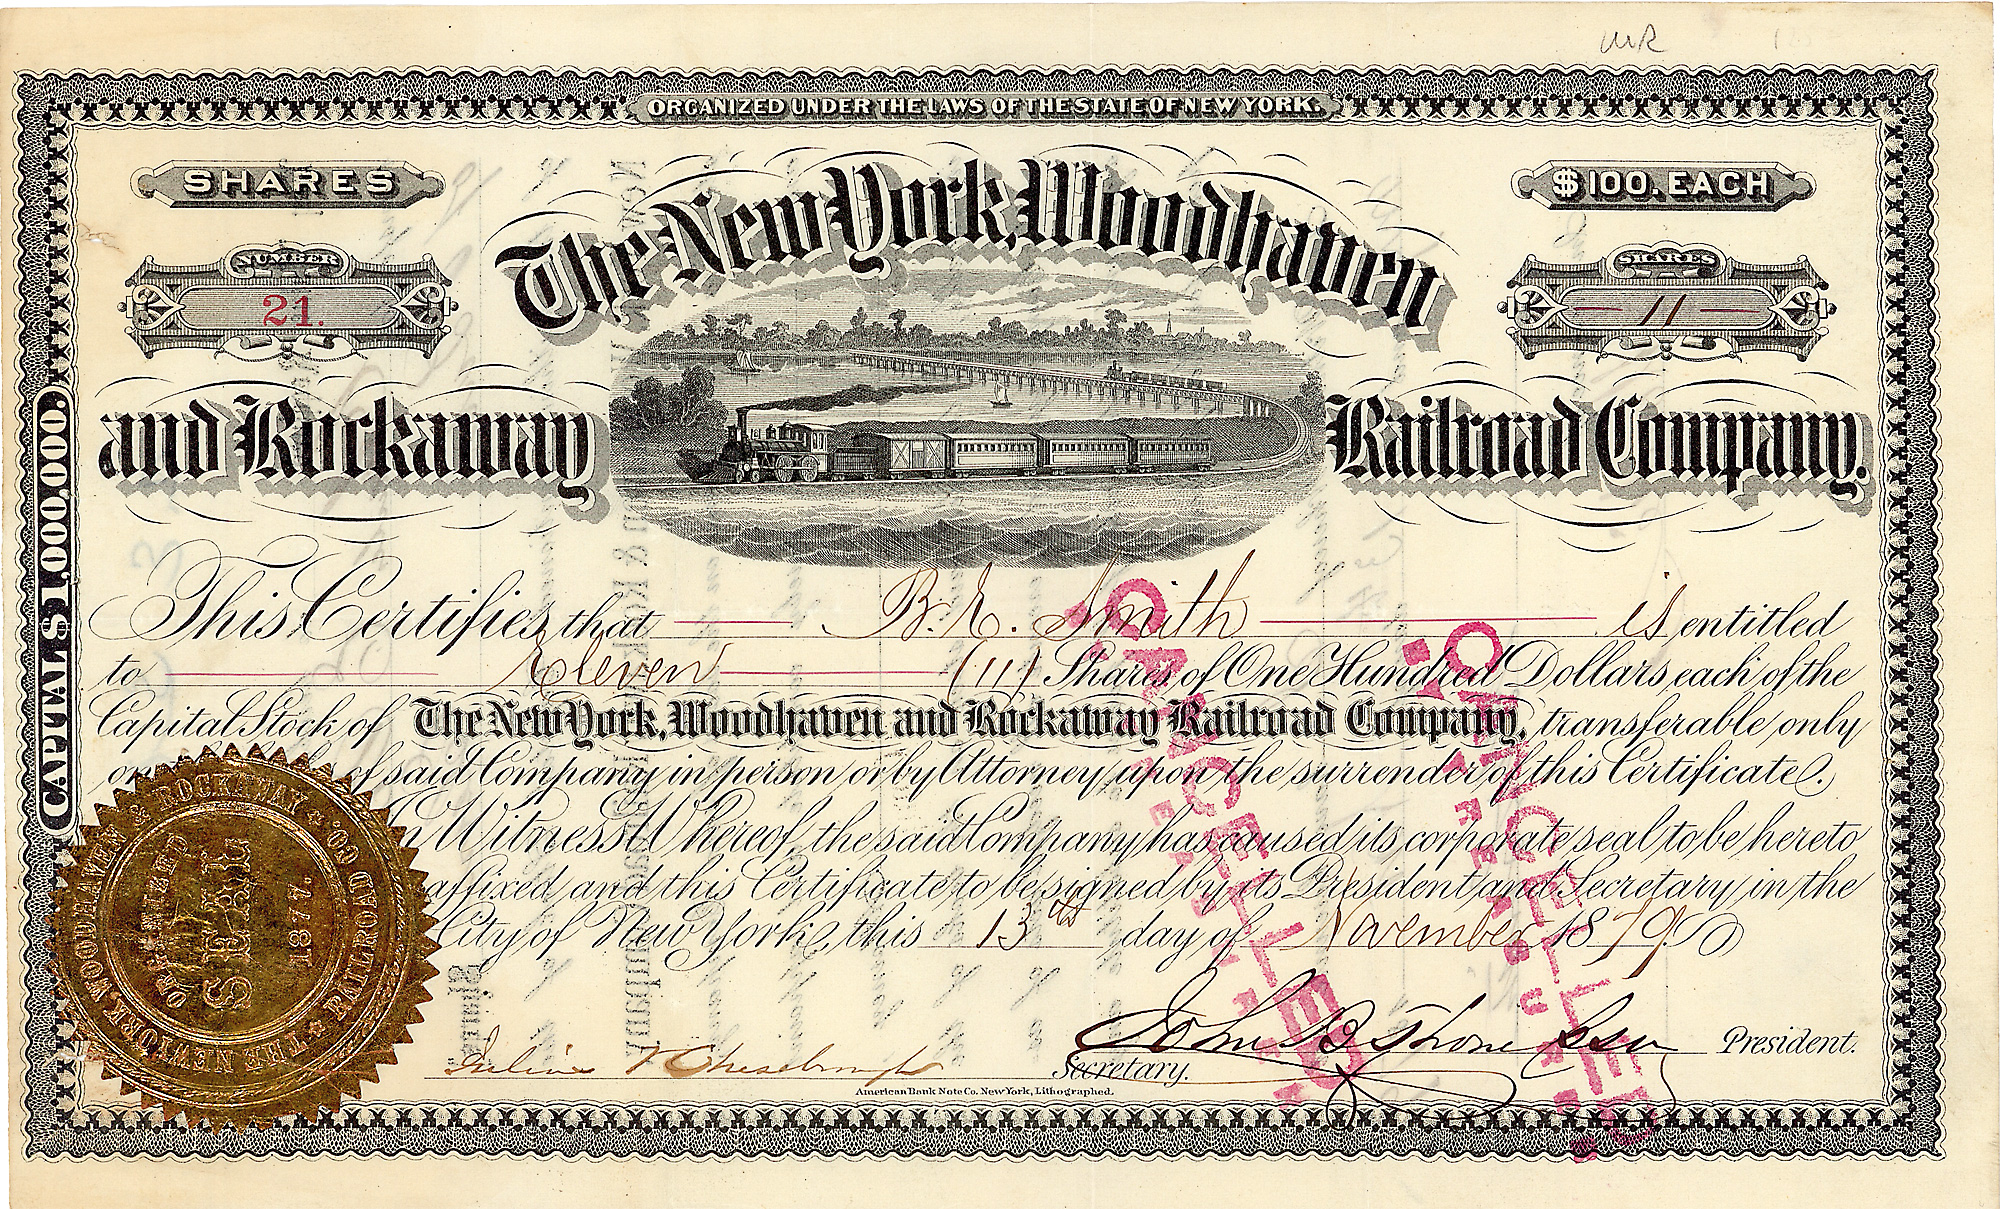 WR
ORGANIZED UNDER THE LAWS OF THE STATE OF NEW YORK.
SHARES
$100. EACH
NUMBER
21.
SHARES
11
The New York, Woodhaven
and Rockaway Railroad Company.
CAPITAL $1,000,000.
This Certifies that B. E. Smith is entitled
to Eleven (11) Shares of One Hundred Dollars each of the
Capital Stock of The New York, Woodhaven and Rockaway Railroad Company, transferable only
on of said Company in person or by Attorney upon the surrender of this Certificate.
In Witness Whereof, the said Company has caused its corporate seal to be hereto
affixed and this Certificate to be signed by its President and Secretary in the
City of New York, this 13th day of November 1879
THE NEW YORK, WOODHAVEN & ROCKAWAY RAILROAD CO.
ORGANIZED
SEAL
1877.
CANCELLED
CANCELLED
President.
Secretary.
American Bank Note Co. New York, Lithographed.